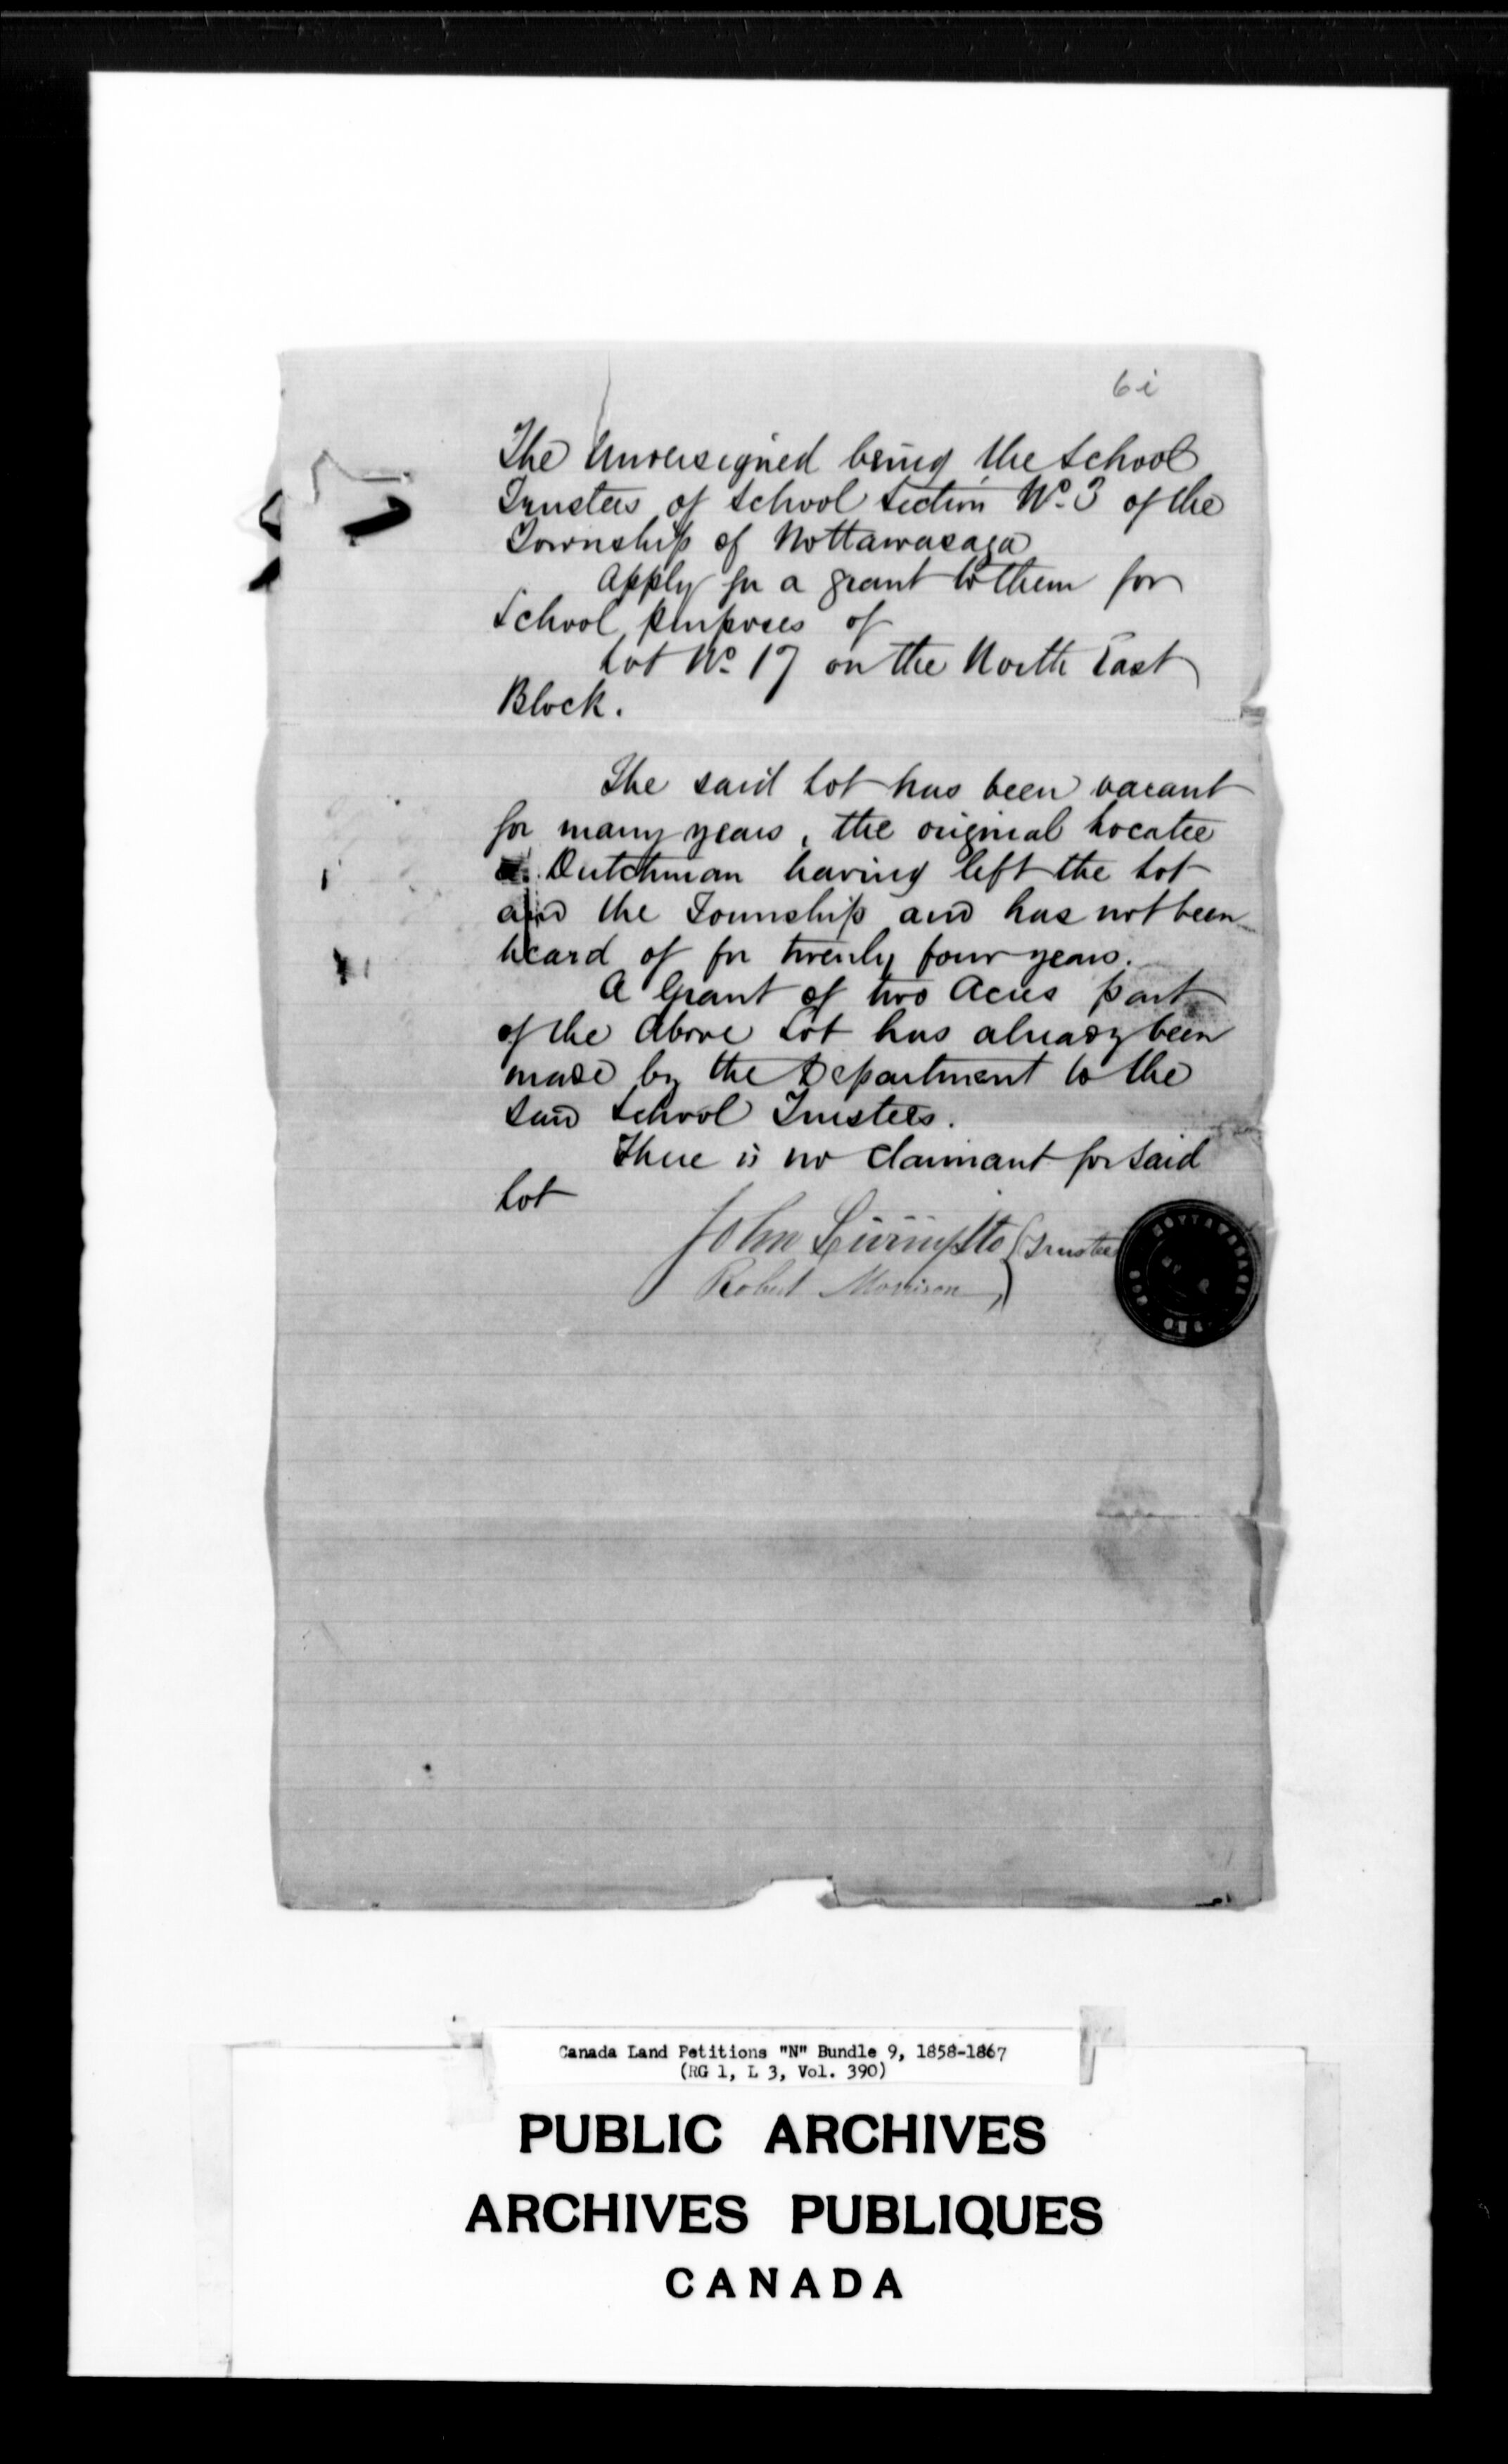 6i
The Undersigned being the School
Trustees of School Section No. 3 of the
Township of Nottawasaga
Apply for a grant to them for
School purposes of
Lot No. 17 on the North East
Block.
The said Lot has been vacant
for many years, the original Locatee
a Dutchman having left the Lot
and the Township and has not been
heard of for twenty four years.
A Grant of two Acres part
of the above Lot has already been
made by the Department to the
said School Trustees.
There is no Claimant for said
Lot
John Trustee
Robert Morrison
NOTTAWASAGA
Canada Land Petitions "N" Bundle 9, 1858-1867
(RG 1, L 3, Vol. 390)
PUBLIC ARCHIVES
ARCHIVES PUBLIQUES
CANADA